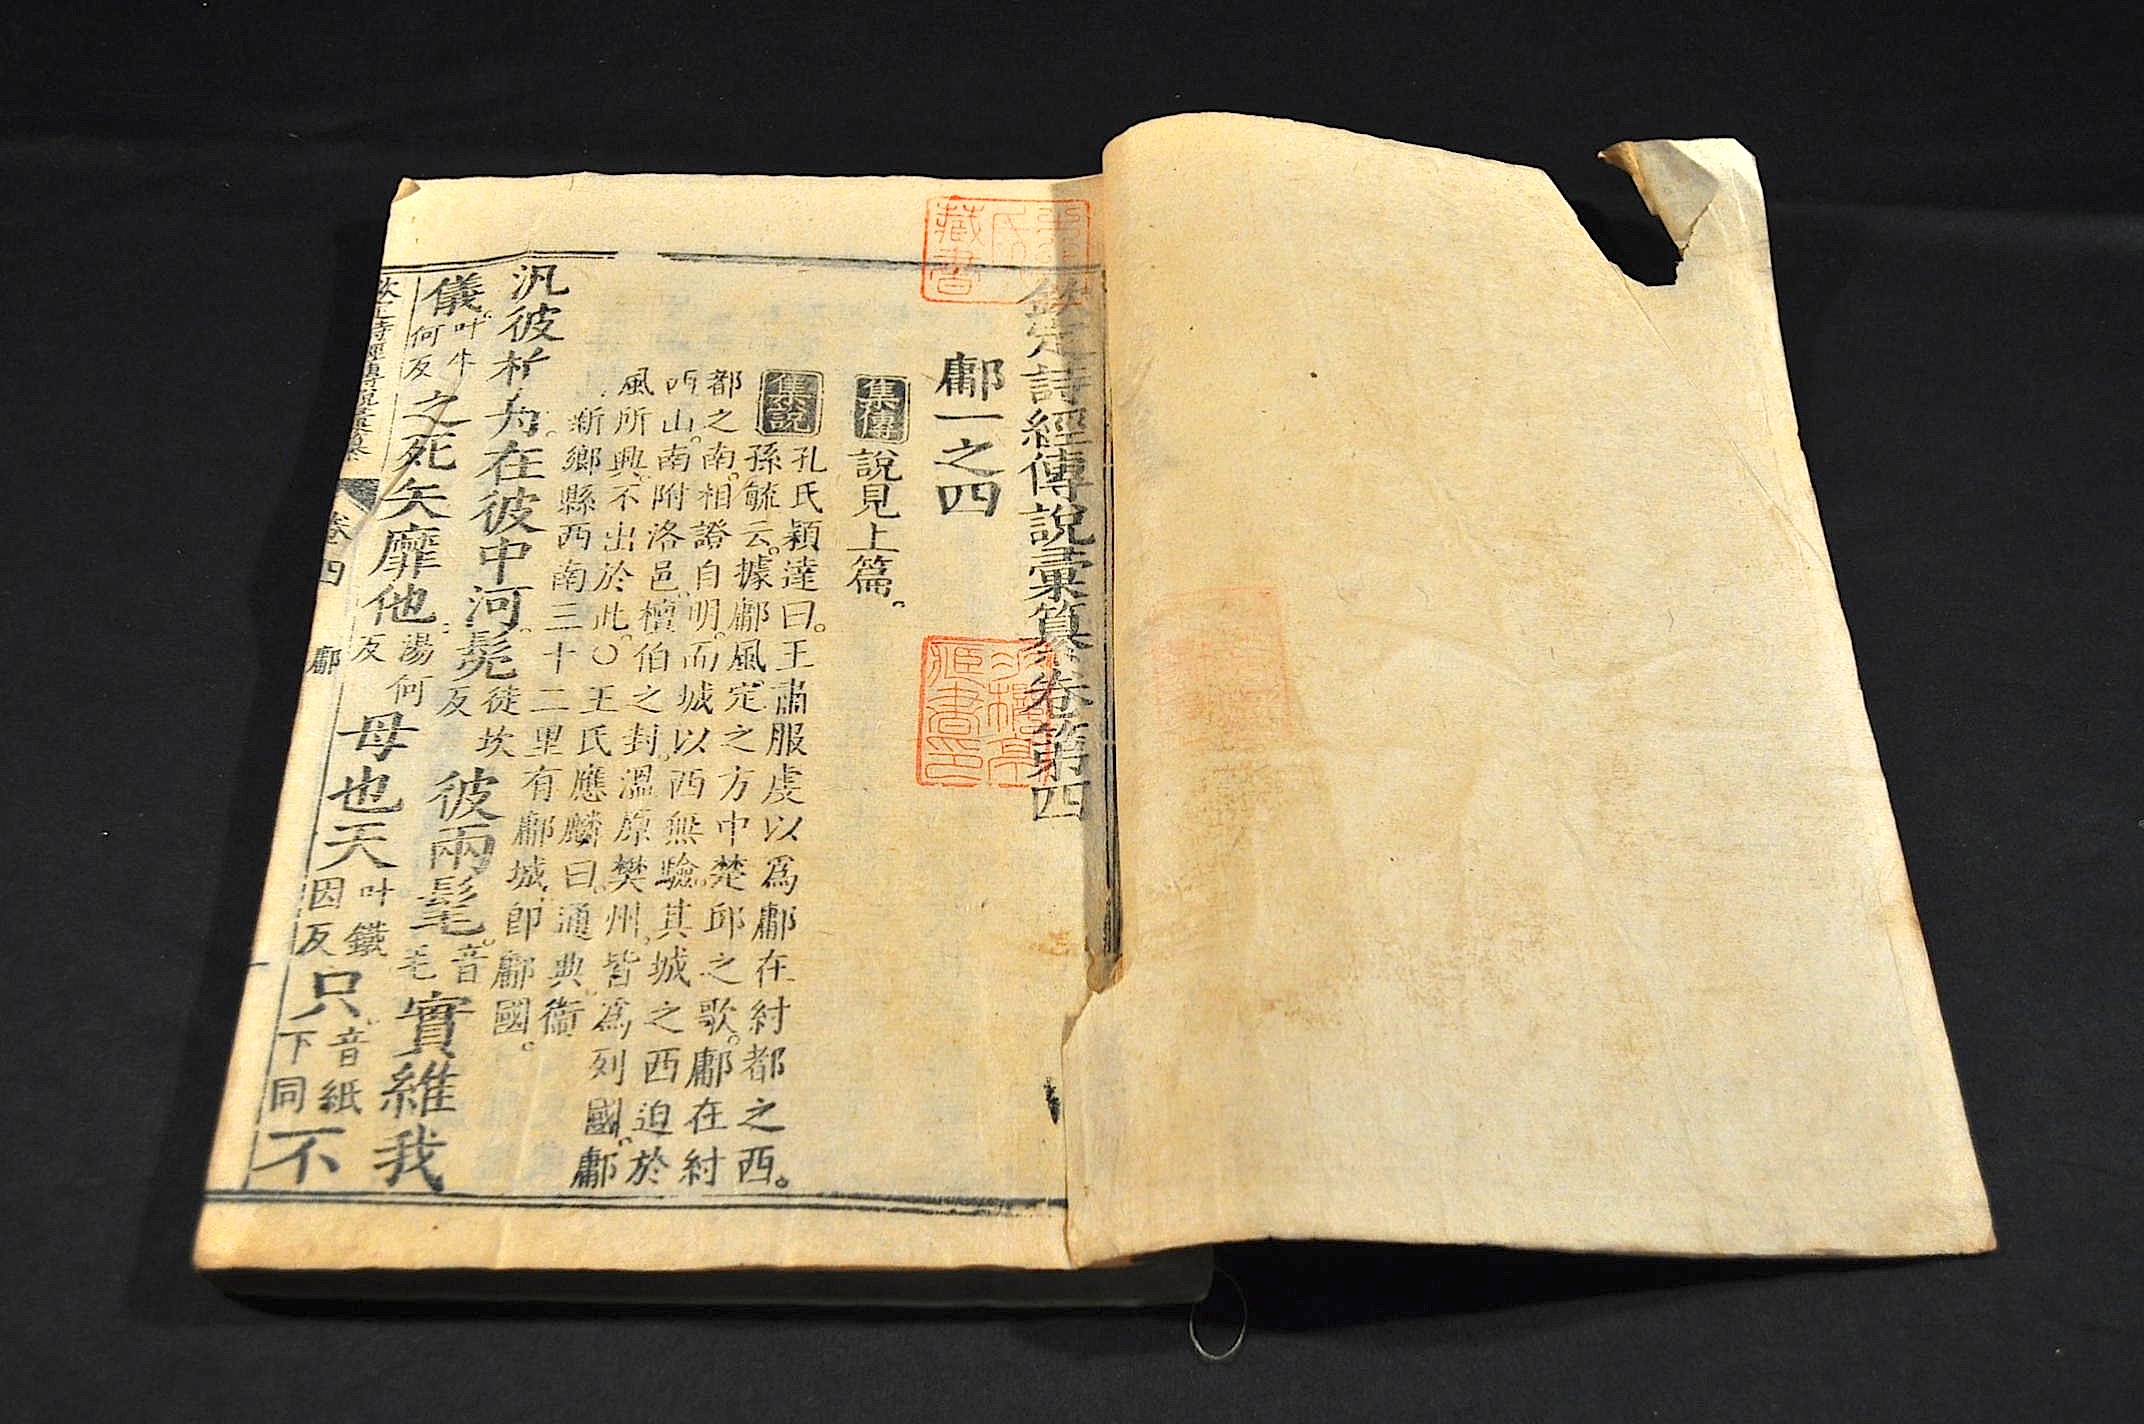 欽定詩經傳說彙纂卷第四
鄘一之四
集傳 說見上篇。
集說 孔氏穎達曰。王肅服虔以爲鄘在紂都之西。
孫毓云。據鄘風定之方中楚邱之歌。鄘在紂
都之南。相證自明。而城以西無驗。其城之西迫於
山。南附洛邑。檀伯之封。溫原樊州。皆爲列國。鄘
風所興。不出於此。○王氏應麟曰。通典。衞
新鄉縣西南三十二里有鄘城。卽鄘國。
汎彼柏舟。在彼中河。髧徒坎反彼兩髦。音毛實維我
儀。叶牛何反之死矢靡他。湯何反母也天叶鐵因反只。音紙下同不
欽定詩經傳說彙纂 卷四 鄘
藏書
藏書印